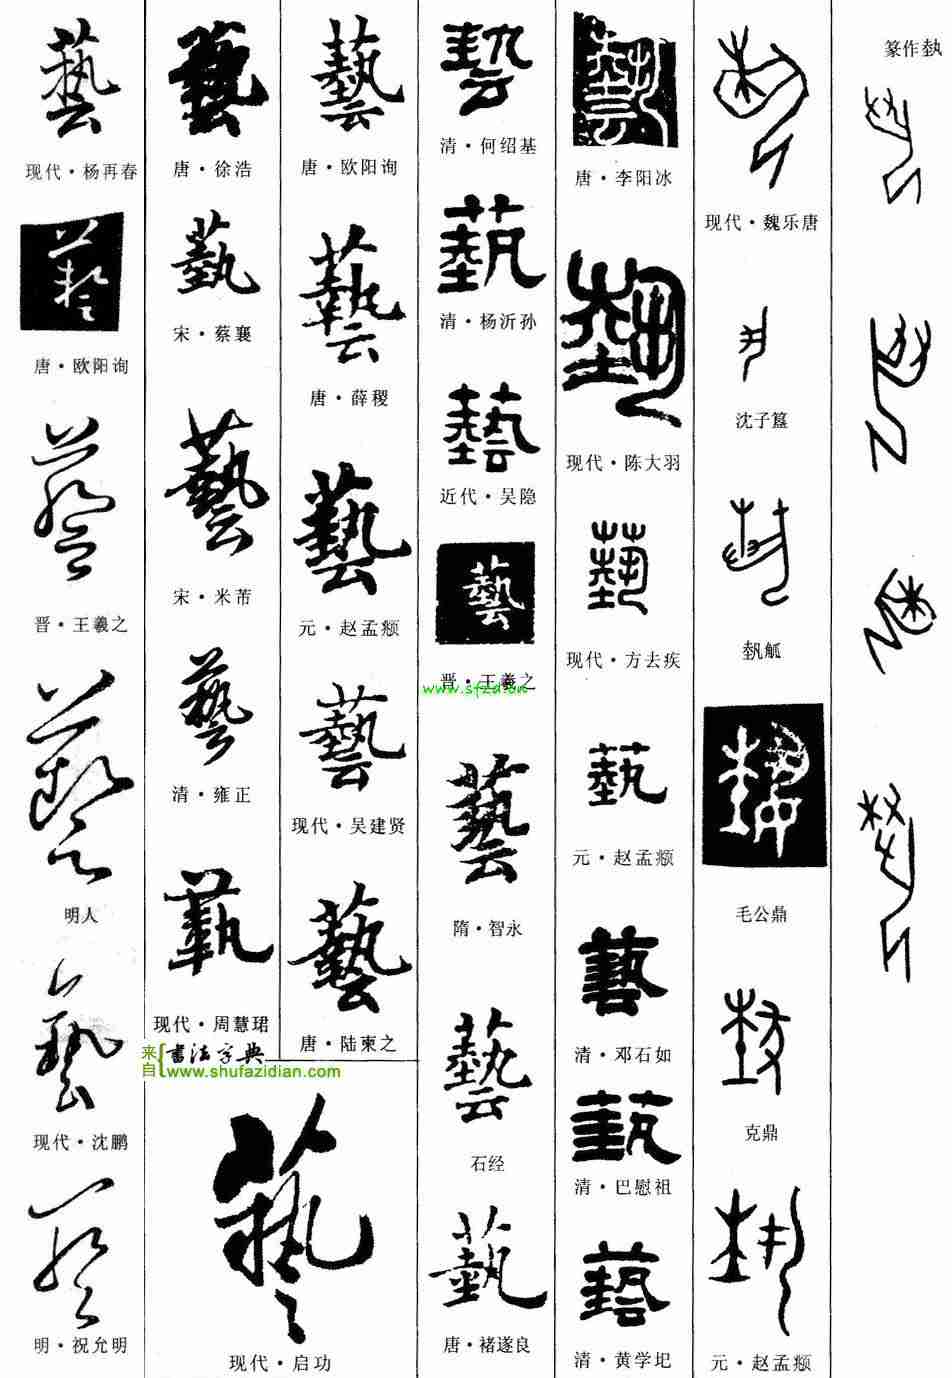 篆作埶
埶
埶
埶
埶
埶
现代·魏乐唐
沈子簋
埶
埶觚
埶
毛公鼎
埶
克鼎
埶
元·赵孟頫
藝
唐·李阳冰
埶
现代·陈大羽
蓺
现代·方去疾
藝
元·赵孟頫
藝
清·邓石如
蓺
清·巴慰祖
清·黄学圯
清·何绍基
蓺
清·杨沂孙
藝
近代·吴隐
藝
晋·王羲之
www.sfzd.cn
藝
隋·智永
藝
石经
蓺
唐·褚遂良
藝
唐·欧阳询
藝
唐·薛稷
藝
元·赵孟頫
藝
现代·吴建贤
藝
唐·陆柬之
藝
唐·徐浩
蓺
宋·蔡襄
藝
宋·米芾
藝
清·雍正
蓺
现代·周慧珺
来自
书法字典
www.shufazidian.com
藝
现代·启功
藝
现代·杨再春
藝
唐·欧阳询
藝
晋·王羲之
藝
明人
藝
现代·沈鹏
藝
明·祝允明